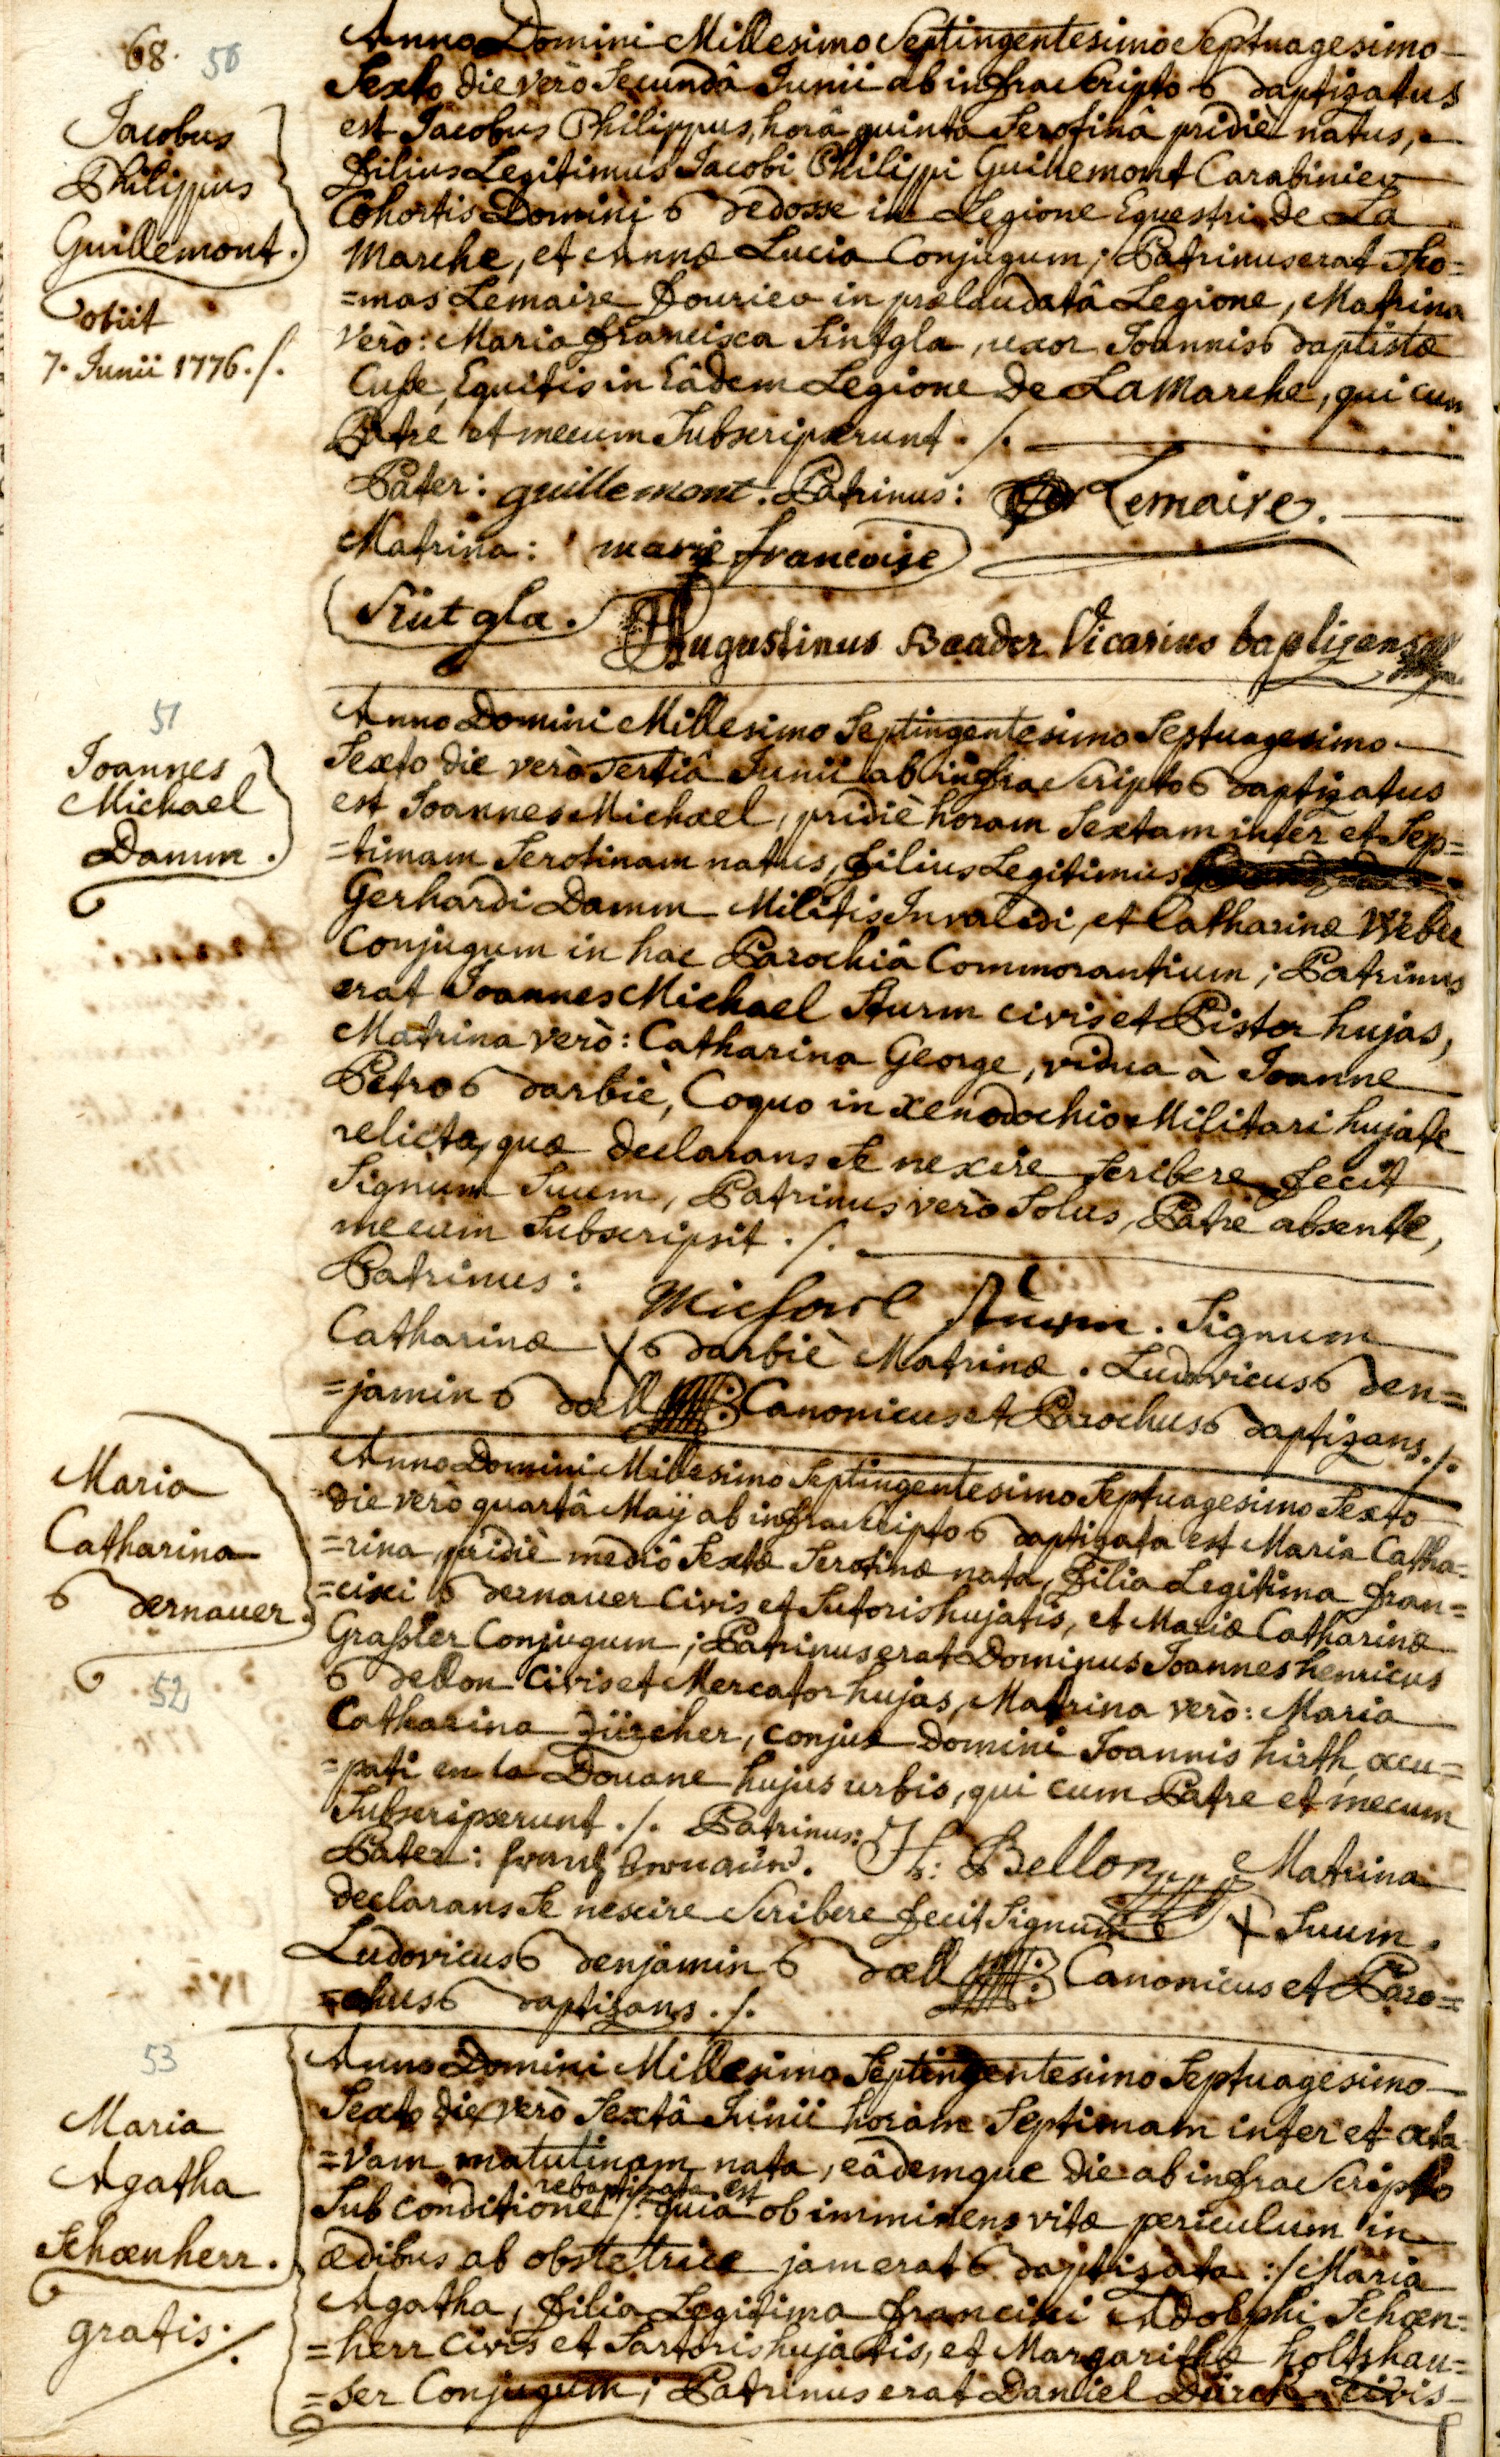 68. 50
Jacobus
Philippus
Guillemont.
obiit
7. Junii 1776./.
Anno Domini Millesimo Septingentesimo Septuagesimo
Sexto die verò Secundâ Junii ab infra Scripto Baptizatus
est Jacobus Philippus, horâ quintâ Serotinâ pridiè natus,
Filius Legitimus Jacobi Philippi Guillemont Carabinier
Cohortis Domini Bedosse in Legione Equestri de La
Marche, et Annæ Lucia Conjugum; Patrinus erat Tho=
=mas Lemaire Fourier in prælaudatâ Legione, Matrina
verò: Maria Francisca Sintgla, uxor Joannis Baptistæ
Equitis in Eâdem Legione de La Marche, qui cum
Patre et mecum Subscripserunt ./.
Pater: guillemont. Patrinus: Lemaire.
Matrina: marie francoise
Sintgla.
Augustinus Baader Vicarius baptizens
51
Joannes
Michael
Damm.
Anno Domini Millesimo Septingentesimo Septuagesimo
Sexto die verò Tertiâ Junii ab infra Scripto Baptizatus
est Joannes Michael, pridiè horam Sextam inter et Sep=
=timam Serotinam natus, Filius Legitimus
Gerhardi Damm Militis Invalidi, et Catharinæ Weber
Conjugum in hac Parochiâ Commorantium; Patrinus
erat Joannes Michael Sturm civis et Pistor hujas,
Matrina verò: Catharina George, vidua à Joanne
Petro Barbiè, Coquo in Xenodochio Militari hujate
relicta, quæ declarans Se nescire Scribere fecit
Signum Suum, Patrinus verò Solus, Patre absente,
mecum Subscripsit ./.
Patrinus: Michael Sturm. Signum
Catharinæ X Barbiè Matrinæ. Ludovicus Ben=
=jamin Bœll Canonicus et Parochus Baptizans./.
Maria
Catharina
Bernauer.
52
Anno Domini Millesimo Septingentesimo Septuagesimo Sexto
die verò quartâ Maÿ ab infra Scripto Baptizata est Maria Catha=
=rina, pridiè mediô Sextæ Serotinæ nata, Filia Legitima Fran=
=cisci Bernauer Civis et Sutoris hujatis, et Mariæ Catharinæ
Graßler Conjugum; Patrinus erat Dominus Joannes henricus
Bellon Civis et Mercator hujas, Matrina verò: Maria
Catharina Zürcher, conjux Domini Joannis hirth, occu=
=pati en la Douane hujus urbis, qui cum Patre et mecum
Subscripserunt ./. Patrinus:
Pater: frantz Bernauer. H: Bellon Matrina
declarans Se nescire Scribere fecit Signum X Suum.
Ludovicus Benjamin Bœll Canonicus et Paro=
=chus Baptizans ./.
53
Maria
Agatha
Schœnherr.
gratis./.
Anno Domini Millesimo Septingentesimo Septuagesimo
Sexto die verò Sextâ Junii horam Septimam inter et octa
=vam matutinam nata, eâdemque die ab infra Scripto
rebaptizata est
Sub conditione /: quia ob imminens vitæ periculum in
ædibus ab obstetrice jam erat Baptizata :/ Maria
Agatha, Filia Legitima Francisci Adolphi Schœn=
=herr Civis et Sartoris hujatis, et Margarithæ holtzhau=
=ser Conjugum; Patrinus erat Daniel Dürck civis